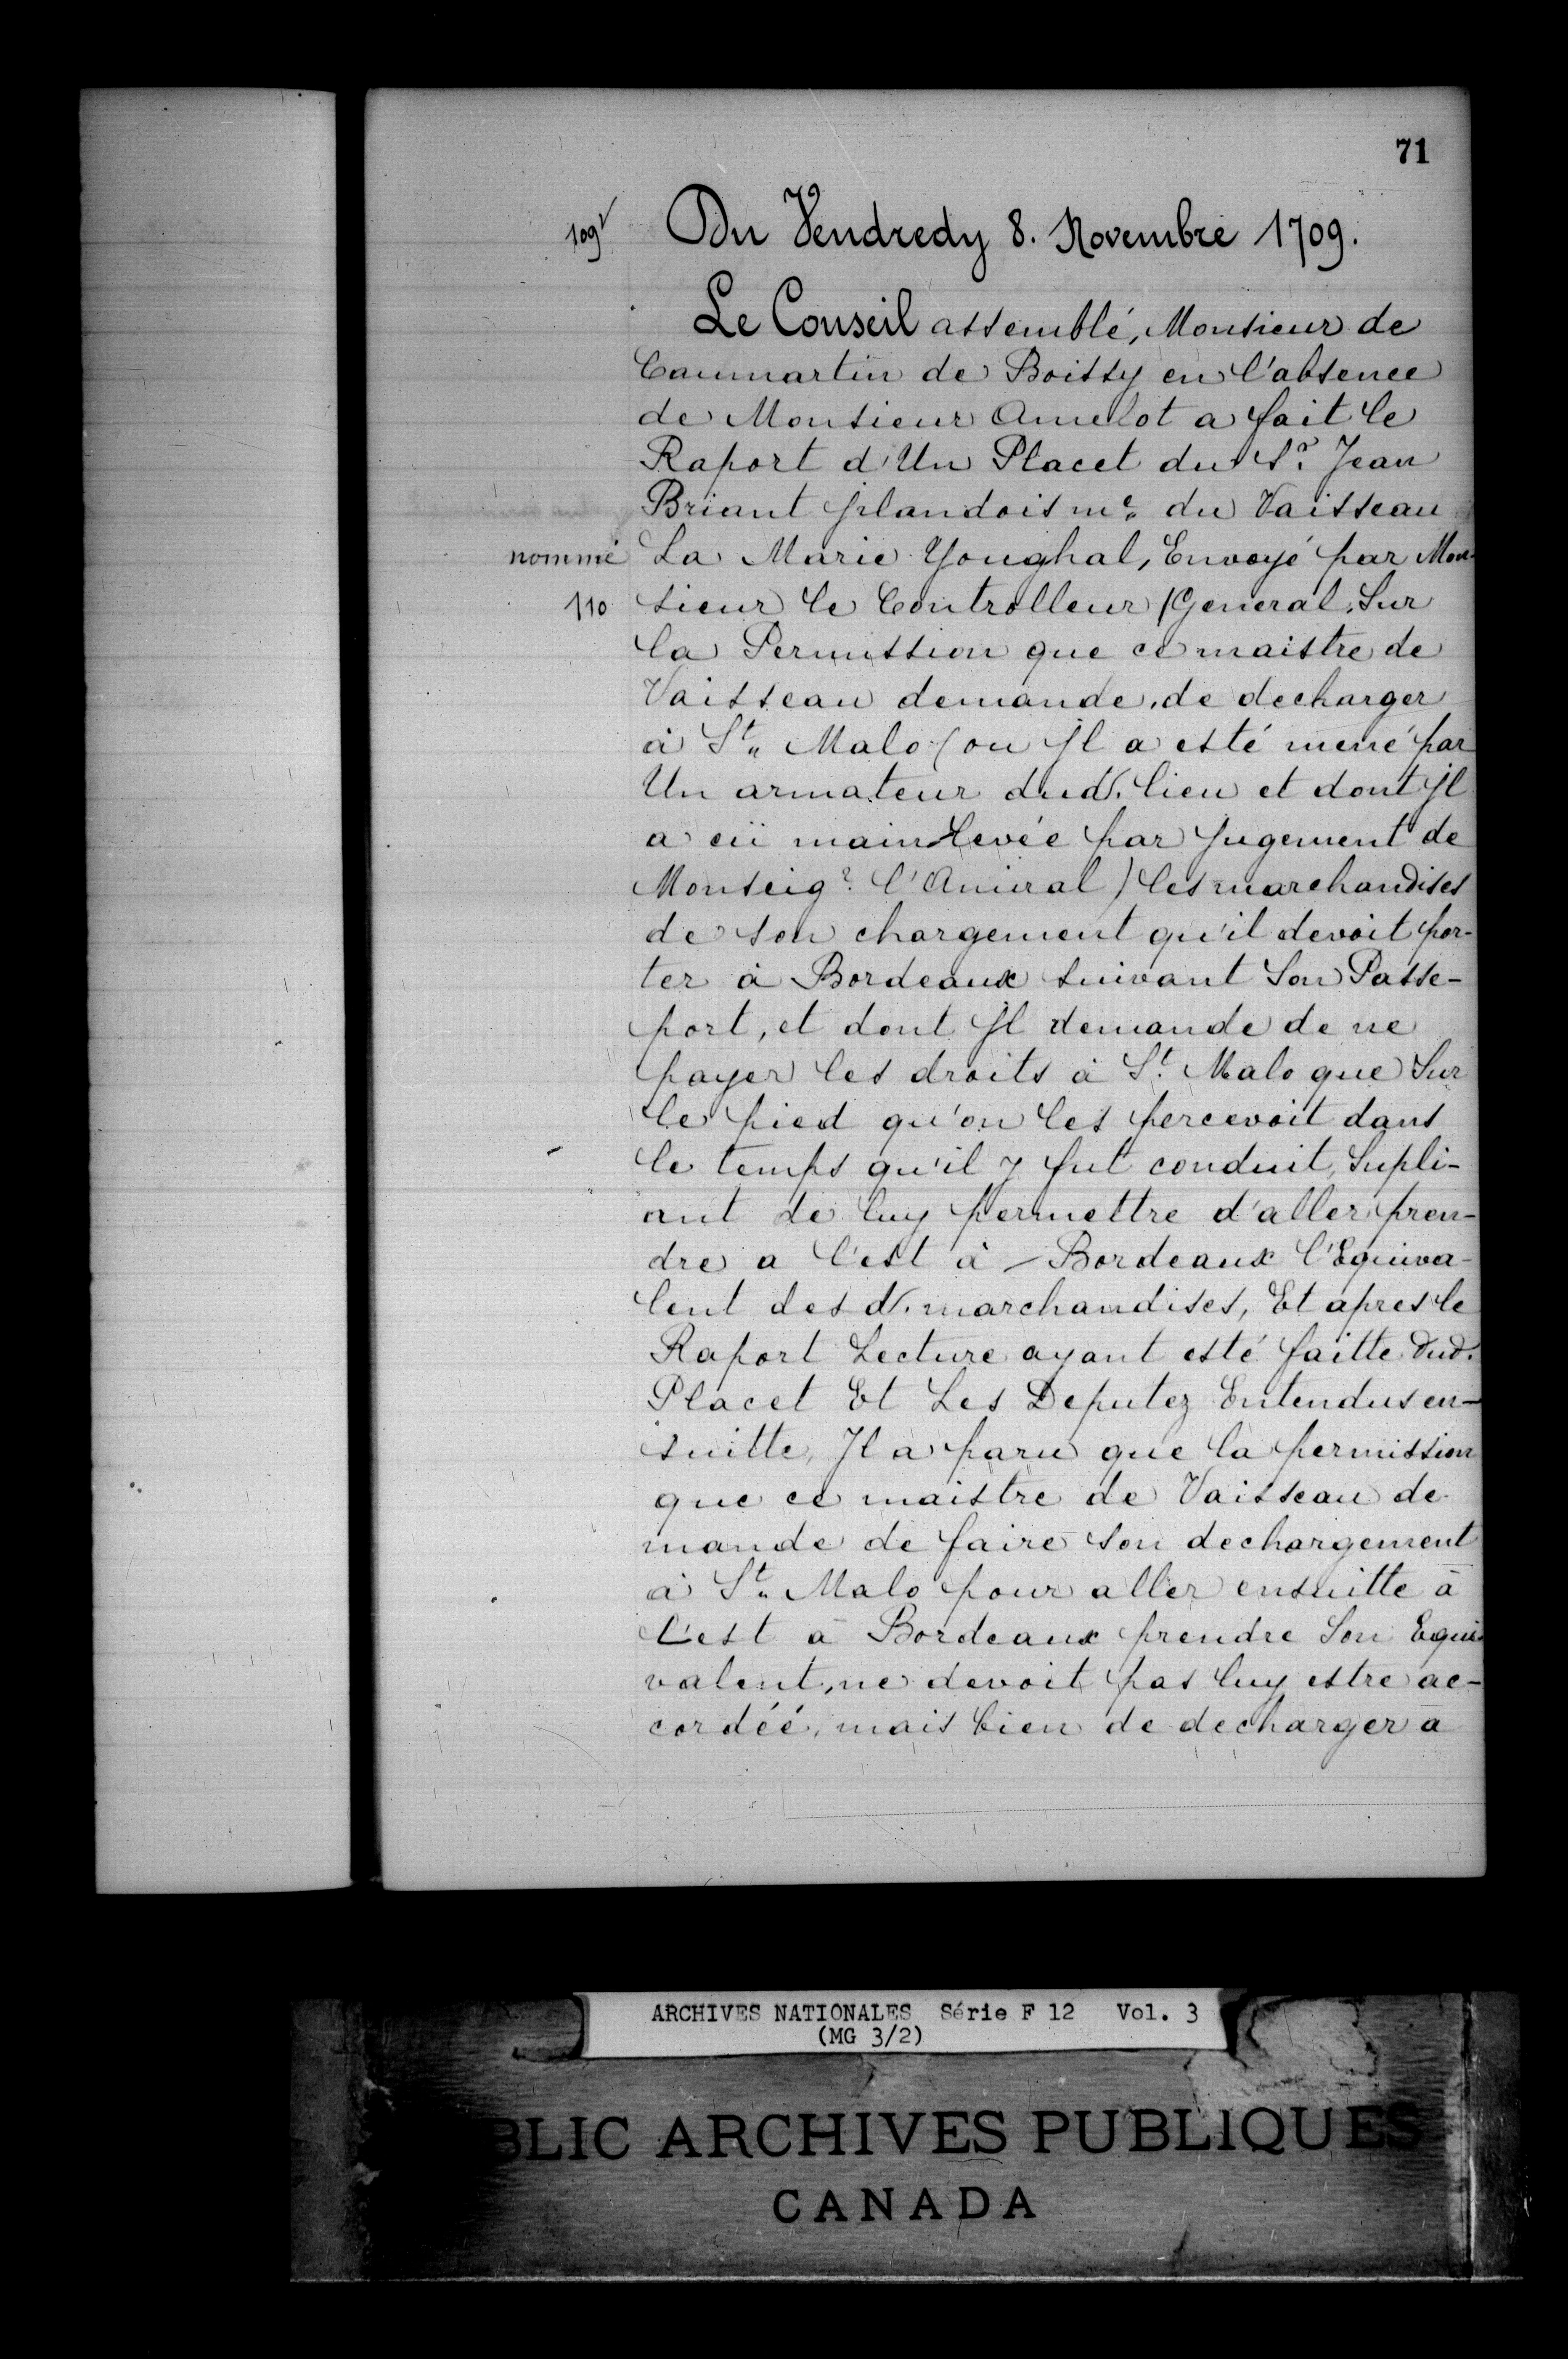 71
109v Du Vendredy 8. Novembre 1709.
Le Conseil assemblé, Monsieur de
Caumartin de Boissy en l'absence
de Monsieur Amelot a fait le
Raport d'Un Placet du Sr. Jean
Briant Jrlandois me. du Vaisseau
nommé La Marie Youghal, Envoyé par Mon-
110 sieur le Controlleur /General. Sur
la Permission que ce maistre de
Vaisseau demande, de decharger
à St. Malo (ou Jl a esté mené par
Un armateur dud. lieu et dont Jl
a eü mainlevée par Jugement de
Monseigr. l'Amiral) les marchandises
de son chargement qu'il devoit por-
ter à Bordeaux suivant Son Passe-
port, et dont Jl demande de ne
payer les droits à St. Malo que Sur
le pied qu'on les percevoit dans
le temps qu'il y fut conduit, Supli-
ant de luy permettre d'aller pren-
dre a l'est à Bordeaux l'Equiva-
lent des d. marchandises, Et apres le
Raport Lecture ayant esté faitte dud.
Placet Et Les Deputez Entendus en-
suitte, Jl a paru que la permission
que ce maistre de Vaisseau de-
mande de faire son dechargement
à St. Malo pour aller ensuitte à
L'est a Bordeaux prendre Son Equi
valent, ne devoit pas luy estre ac-
cordéé, mais bien de decharger a
ARCHIVES NATIONALES Série F 12 Vol. 3
(MG 3/2)
BLIC ARCHIVES PUBLIQUES
CANADA